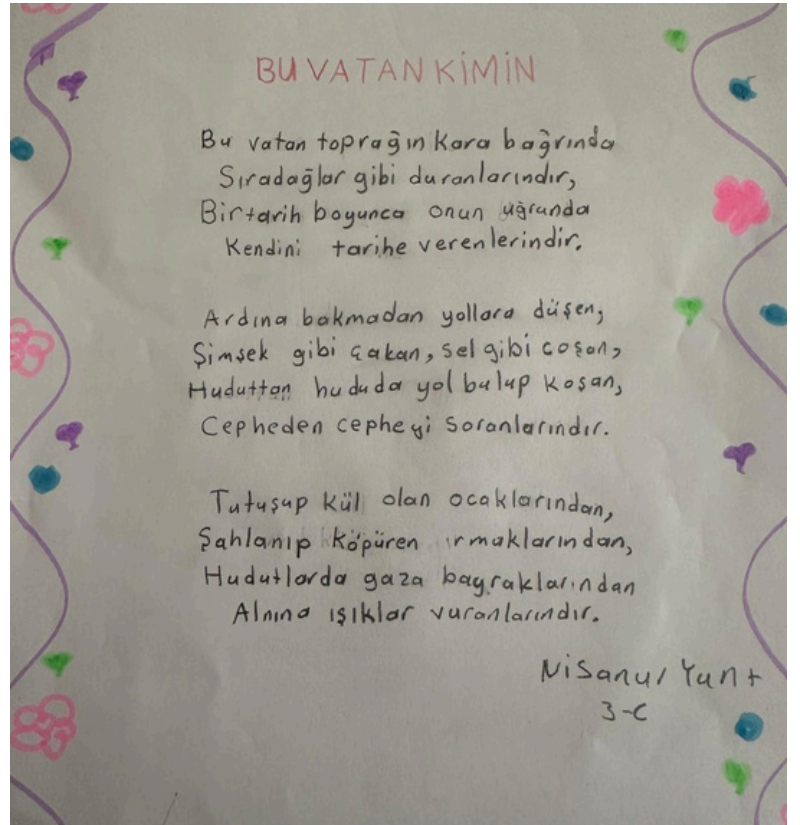 BU VATAN KİMİN
Bu vatan toprağın kara bağrında
Sıradağlar gibi duranlarındır,
Bir tarih boyunca onun uğrunda
Kendini tarihe verenlerindir.
Ardına bakmadan yollara düşen,
Şimşek gibi çakan, sel gibi coşan,
Huduttan hududa yol bulup koşan,
Cepheden cepheyi soranlarındır.
Tutuşup kül olan ocaklarından,
Şahlanıp köpüren ırmaklarından,
Hudutlarda gaza bayraklarından
Alnına ışıklar vuranlarındır.
Nisanur Yunt
3-C